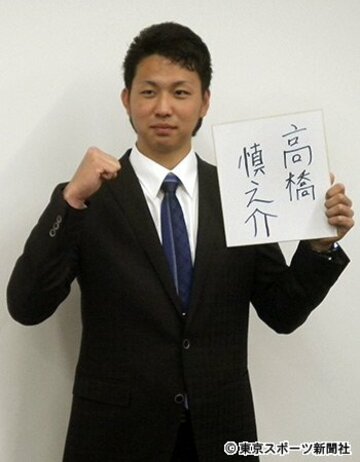 高橋
慎之介
©東京スポーツ新聞社